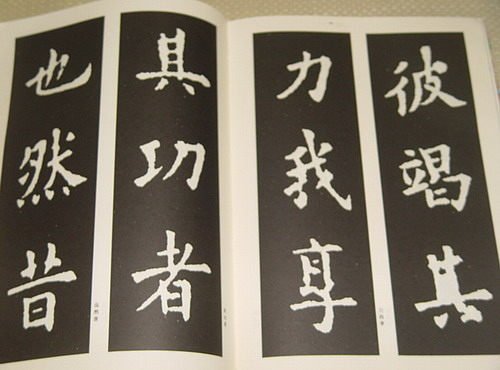 彼竭其
力我享
其功者
也然昔